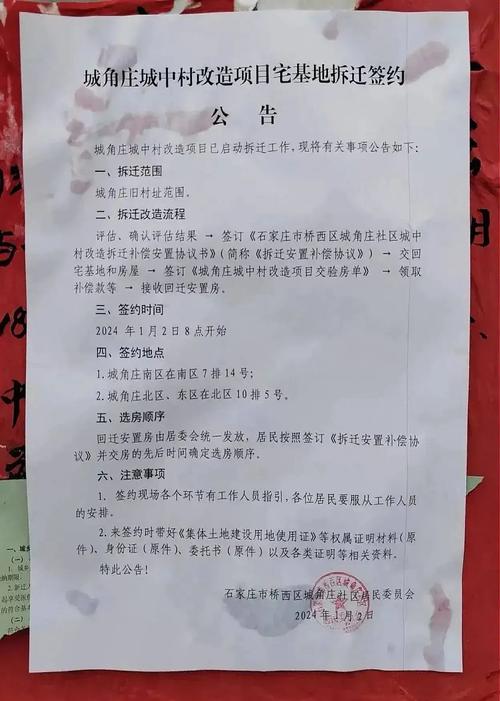 城角庄城中村改造项目宅基地拆迁签约
公 告
城角庄城中村改造项目已启动拆迁工作,现将有关事项公告如下:
一、拆迁范围
城角庄旧村址范围。
二、拆迁改造流程
评估、确认评估结果 → 签订《石家庄市桥西区城角庄社区城中
村改造拆迁补偿安置协议书》(简称《拆迁安置补偿协议》) → 交回
宅基地和房屋 → 签订《城角庄城中村改造项目交验房单》 → 领取
补偿款等 → 接收回迁安置房。
三、签约时间
2024 年 1 月 2 日 8 点开始
四、签约地点
1.城角庄南区在南区 7 排 14 号;
2.城角庄北区、东区在北区 10 排 5 号。
五、选房顺序
回迁安置房由居委会统一发放,居民按照签订《拆迁安置补偿协
议》并交房的先后时间确定选房顺序。
六、注意事项
1. 签约现场各个环节有工作人员指引,各位居民要服从工作人员
的安排。
2.来签约时带好《集体土地建设用地使用证》等权属证明材料(原
件)、身份证(原件)、委托书(原件)以及各类证明等相关资料。
特此公告!
石家庄市桥西区城角庄社区居民委员会
2024 年 1 月 2 日
与
18
中
一、城乡
(一)
1. 城乡
纳期限:
2. 新过
起享受医
的符合基本
(二)